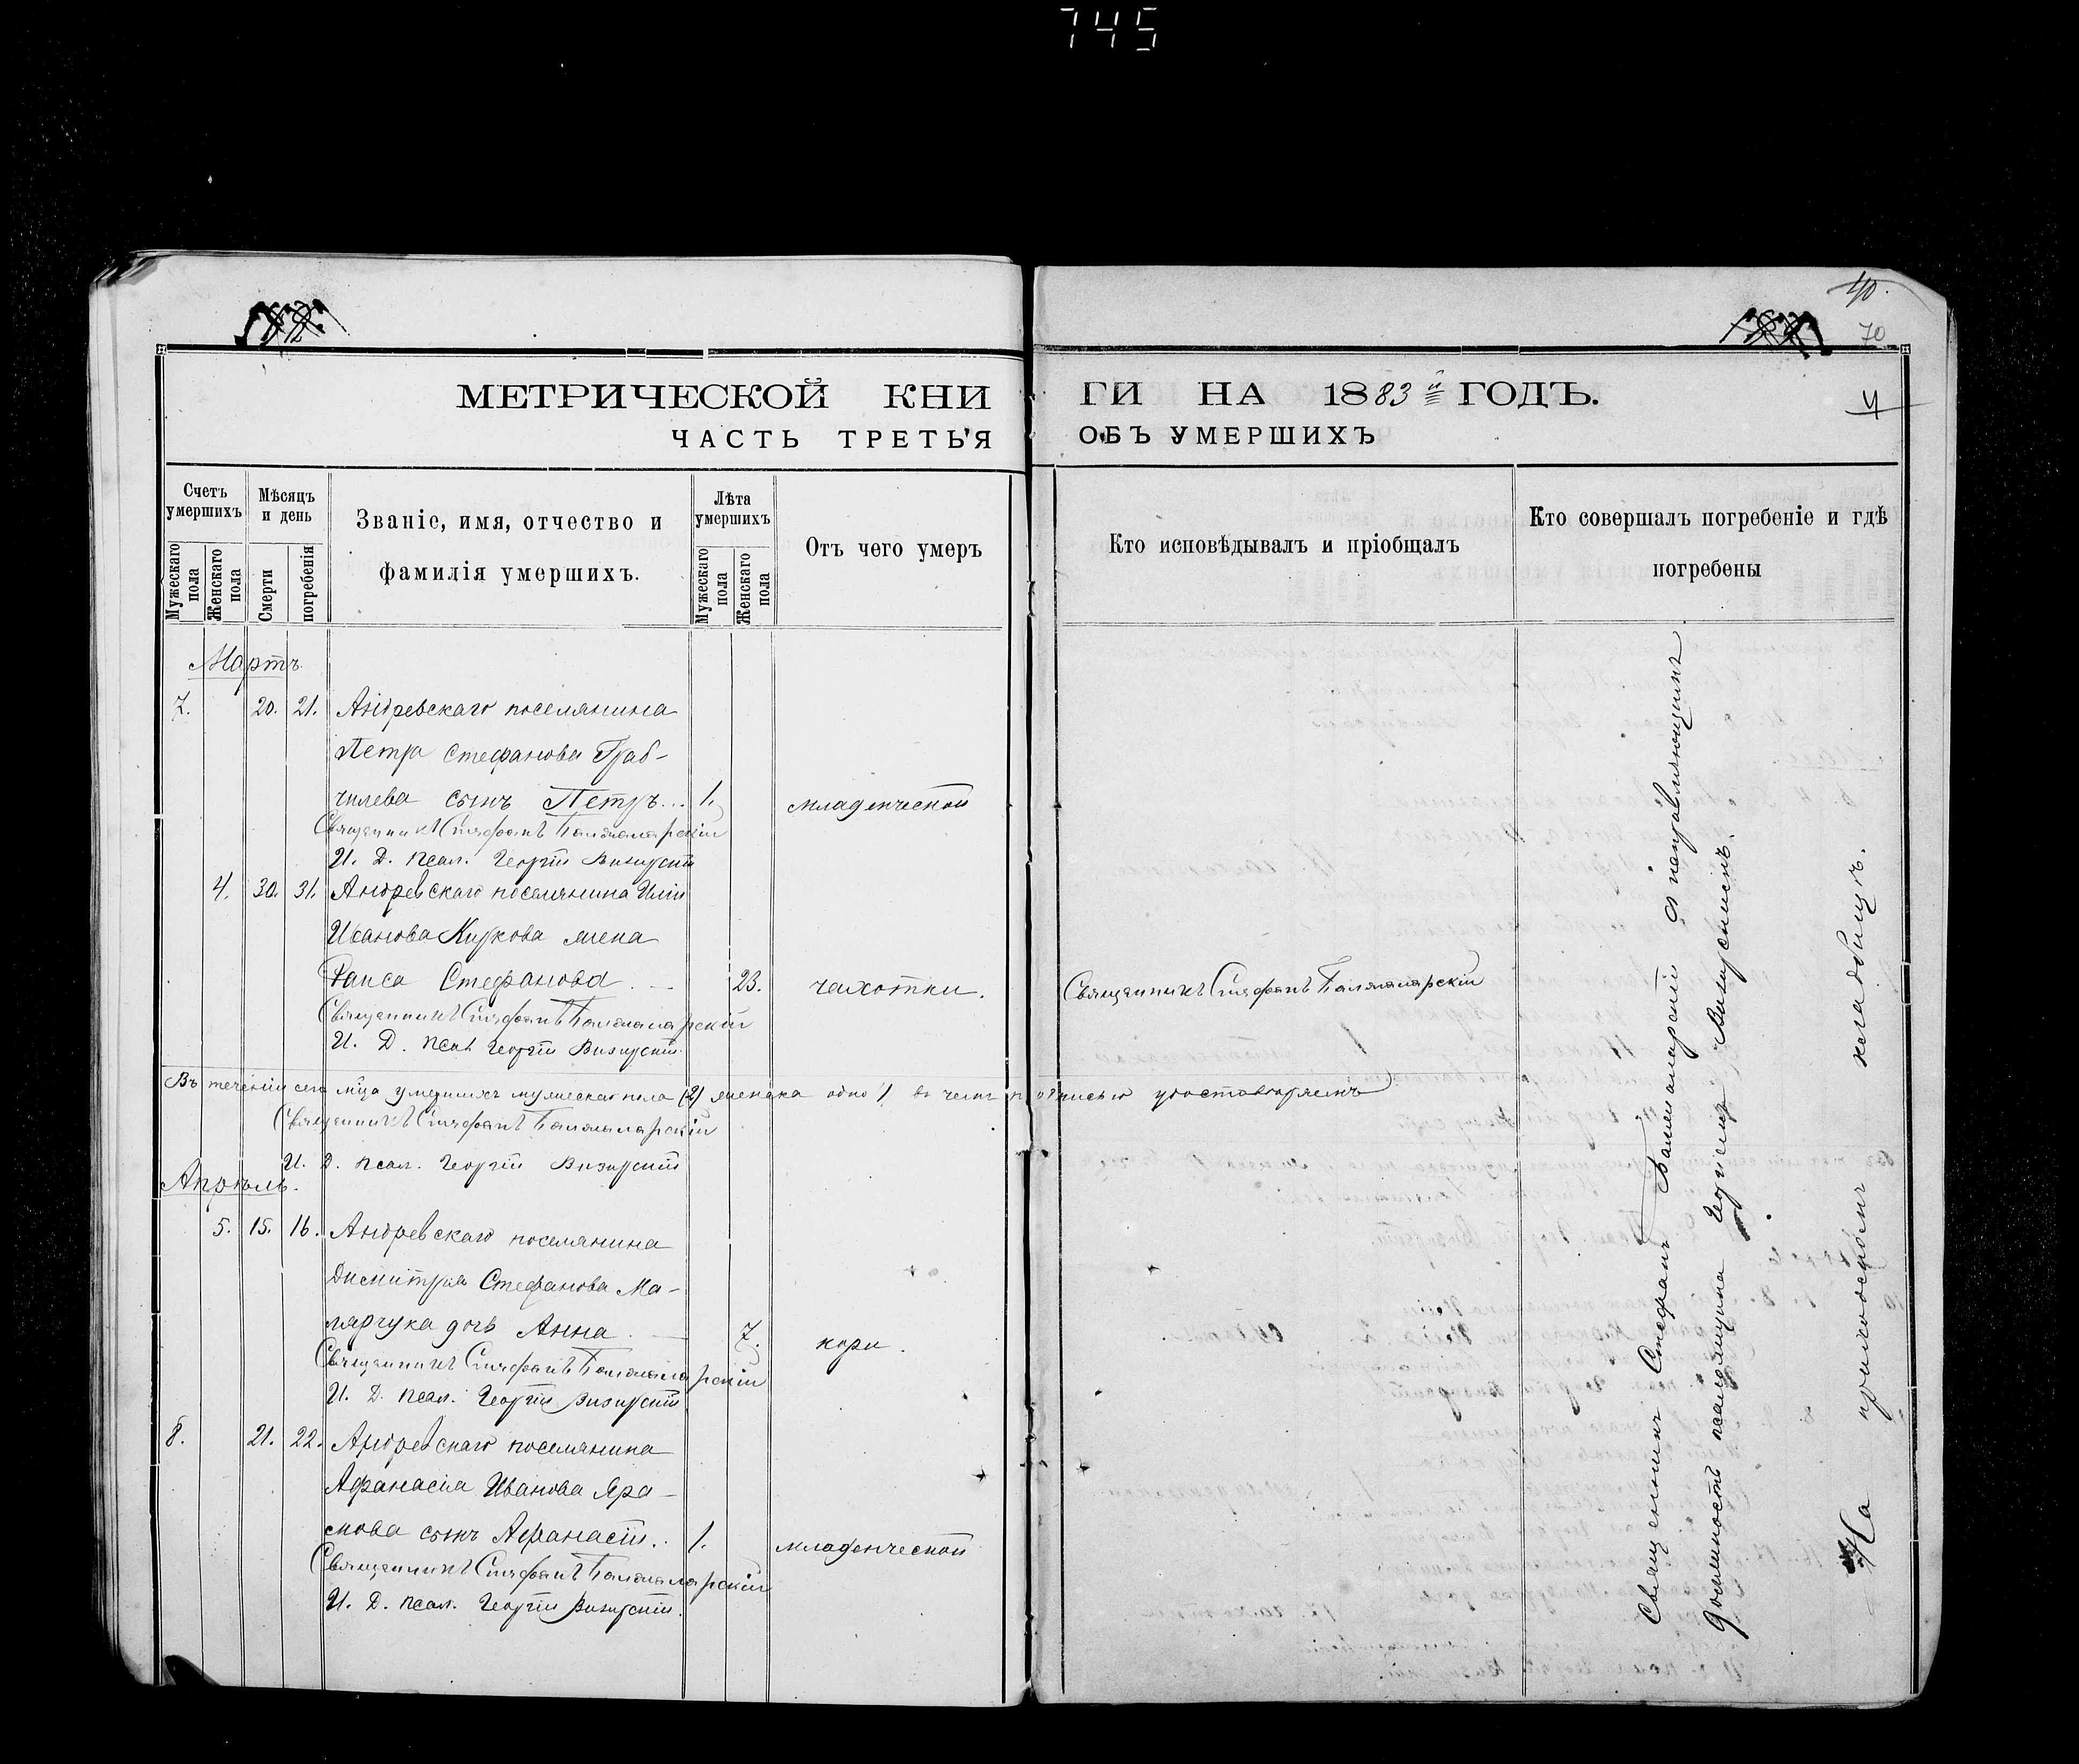 745
40.
70
МЕТРИЧЕСКОЙ КНИГИ НА 1883й ГОДЪ.
4
ЧАСТЬ ТРЕТЬЯ ОБЪ УМЕРШИХЪ
Счетъ умершихъ
Мужескаго пола
Женскаго пола
Мѣсяцъ и день
Смерти
погребенія
Званіе, имя, отчество и
фамилія умершихъ.
Лѣта умершихъ
Мужескаго пола
Женскаго пола
Отъ чего умеръ
Кто исповѣдывалъ и пріобщалъ
Кто совершалъ погребеніе и гдѣ
погребены
Мартъ
7. 20. 21. Андревскаго поселянина
Петра Стефанова
чилева сынъ Петръ 1. младенческой
Священникъ Стефанъ Баламарскій
И. Д. псал. Георгій Визирскій
4. 30. 31. Андревскаго поселянина Иліи
Иванова Киркова жена
Раиса Стефанова 23. чахотки. Священникъ Стефанъ Баламарскій
Священникъ Стефанъ Баламарскій
И. Д. псал Георгій Визирскій
Въ теченіи сего мѣца умершихъ мужескаго пола (2) женска одно 1 въ чемъ подписью удостовѣряемъ
Священникъ Стефанъ Баламарскій
И. Д. псал. Георгій Визирскій
Апрѣль.
5. 15. 16. Андревскаго поселянина
Димитрія Стефанова Ма-
лярчука дочь Анна 7. кори.
Священникъ Стефанъ Баламарскій
И. Д. псал. Георгій Визирскій
8. 21. 22. Андревскаго поселянина
Афанасіа Иванова Яра-
мова сынъ Афанасій. 1. младенческой
Священникъ Стефанъ Баламарскій
И. Д. псал. Георгій Визирскій.
Священникъ Стефанъ Баламарскій съ исправляющимъ
должность псаломщика Георгіемъ Визирскимъ.
На приходскомъ кладбищѣ.